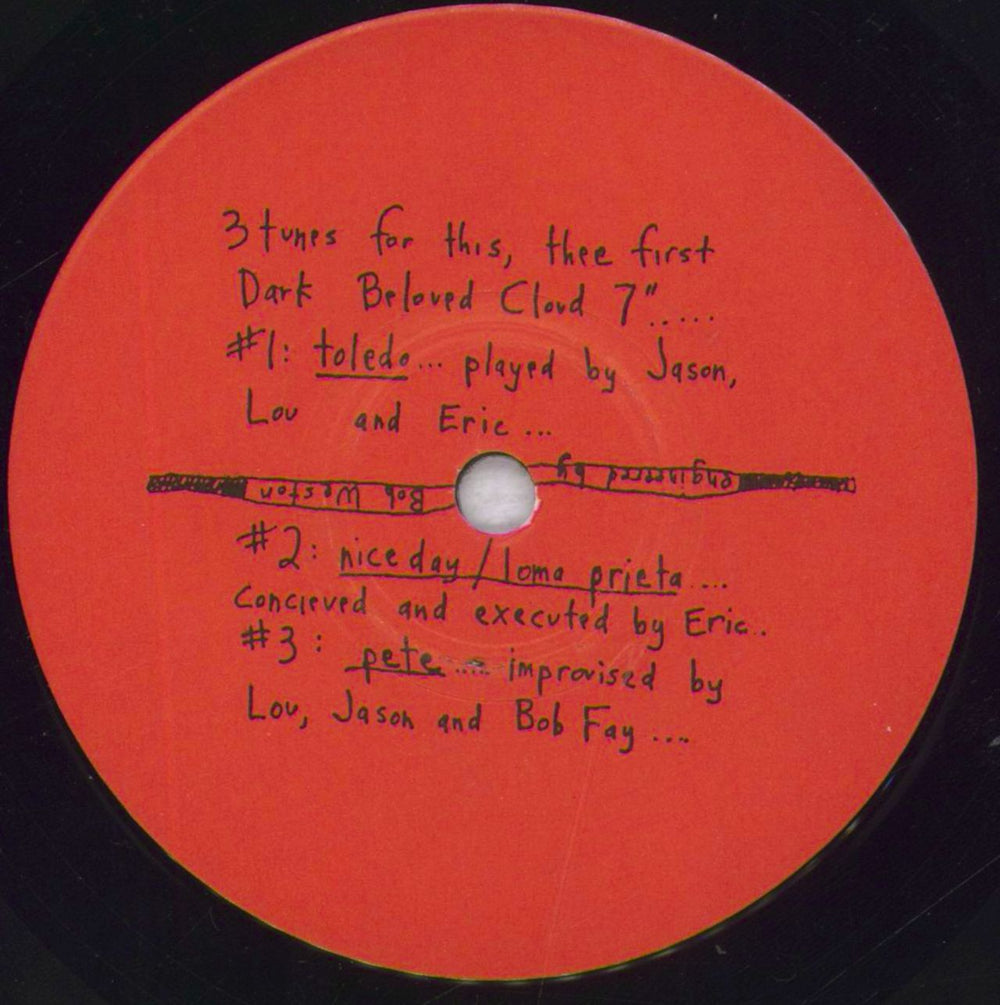 3 tunes for this, thee first
Dark Beloved Cloud 7".....
#1: toledo... played by Jason,
Lou and Eric...
engineered by
Bob Weston
#2: nice day / loma prieta....
concieved and executed by Eric..
#3: pete.... improvised by
Lou, Jason and Bob Fay....